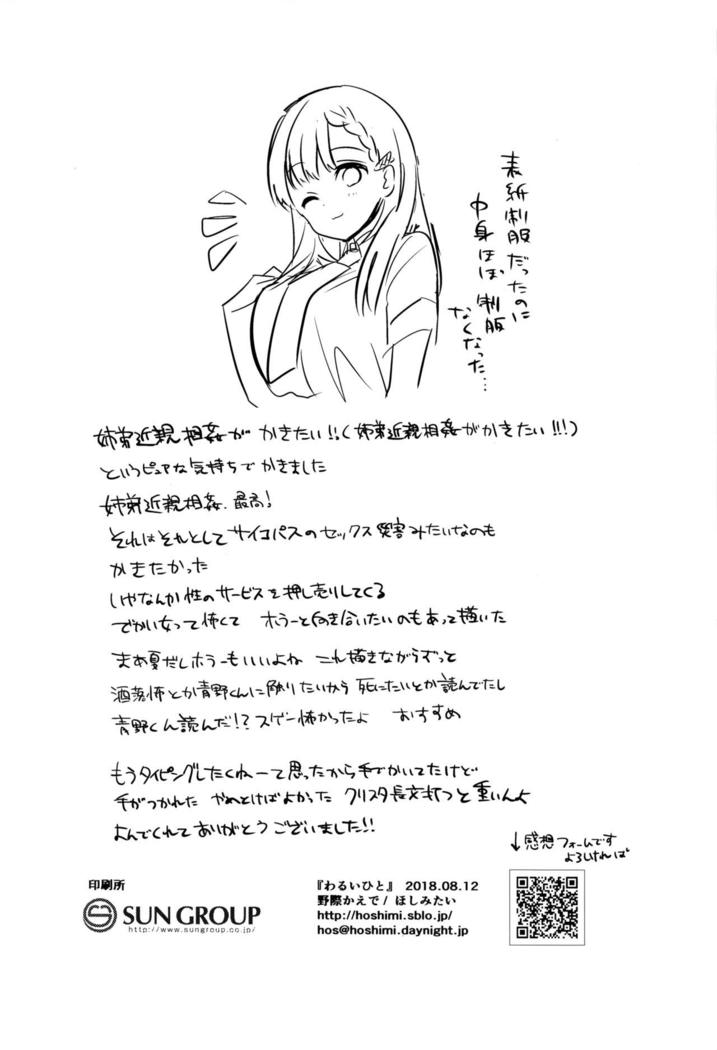 表紙制服だったのに
中身ほぼ制服
なくなった…
姉弟近親相姦が かきたい!!(姉弟近親相姦がかきたい!!!)
というピュアな気持ちでかきました
姉弟近親相姦、最高!
それはそれとしてサイコパスのセックス災害みたいなのも
かきたかった
いやなんか性のサービスを押し売りしてくる
でかい女って怖くて ホラーと向き合いたいのもあって描いた
まあ夏だしホラーもいいよね これ描きながらずっと
洒落怖とか青野くんに触りたいから死にたいとか読んでたし
青野くん読んだ!?スゲー怖かったよ おすすめ
もうタイピングしたくねーって思ったから手でかいてたけど
手がつかれた やめとけばよかった クリスタ長文打つと重いんよ
よんでくれてありがとうございました!!
↓感想フォームです
よろしければ
印刷所
SUN GROUP
http://www.sungroup.co.jp/
『わるいひと』 2018.08.12
野際かえで/ ほしみたい
http://hoshimi.sblo.jp/
hos@hoshimi.daynight.jp